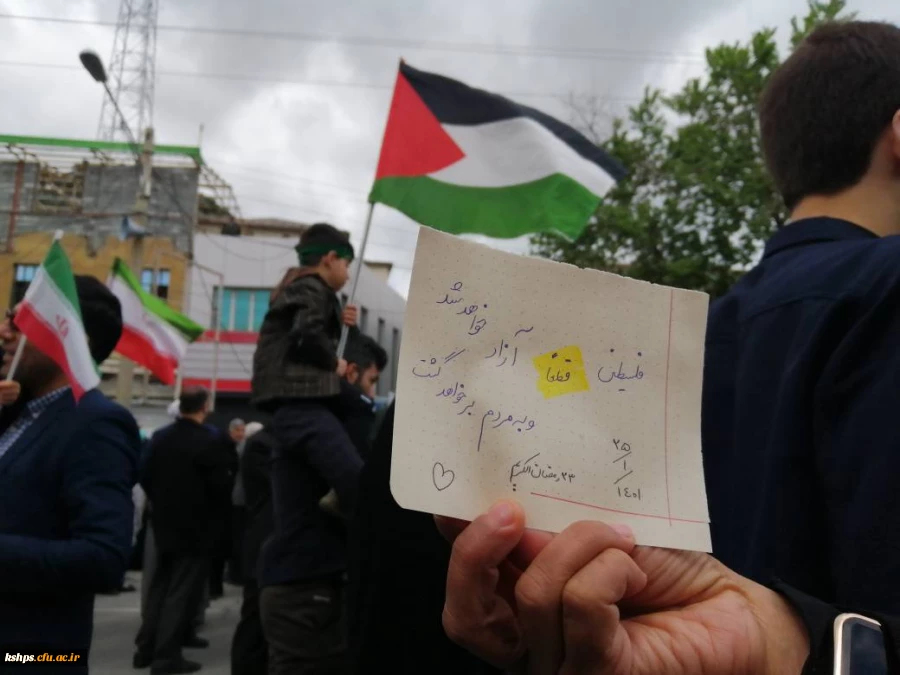 فلسطین قطعا آزاد خواهد شد
و به مردم بر خواهد گشت
۲۵
/
۱
/
۱۴۰۱
۲۳ رمضان الکریم
kshps.cfu.ac.ir